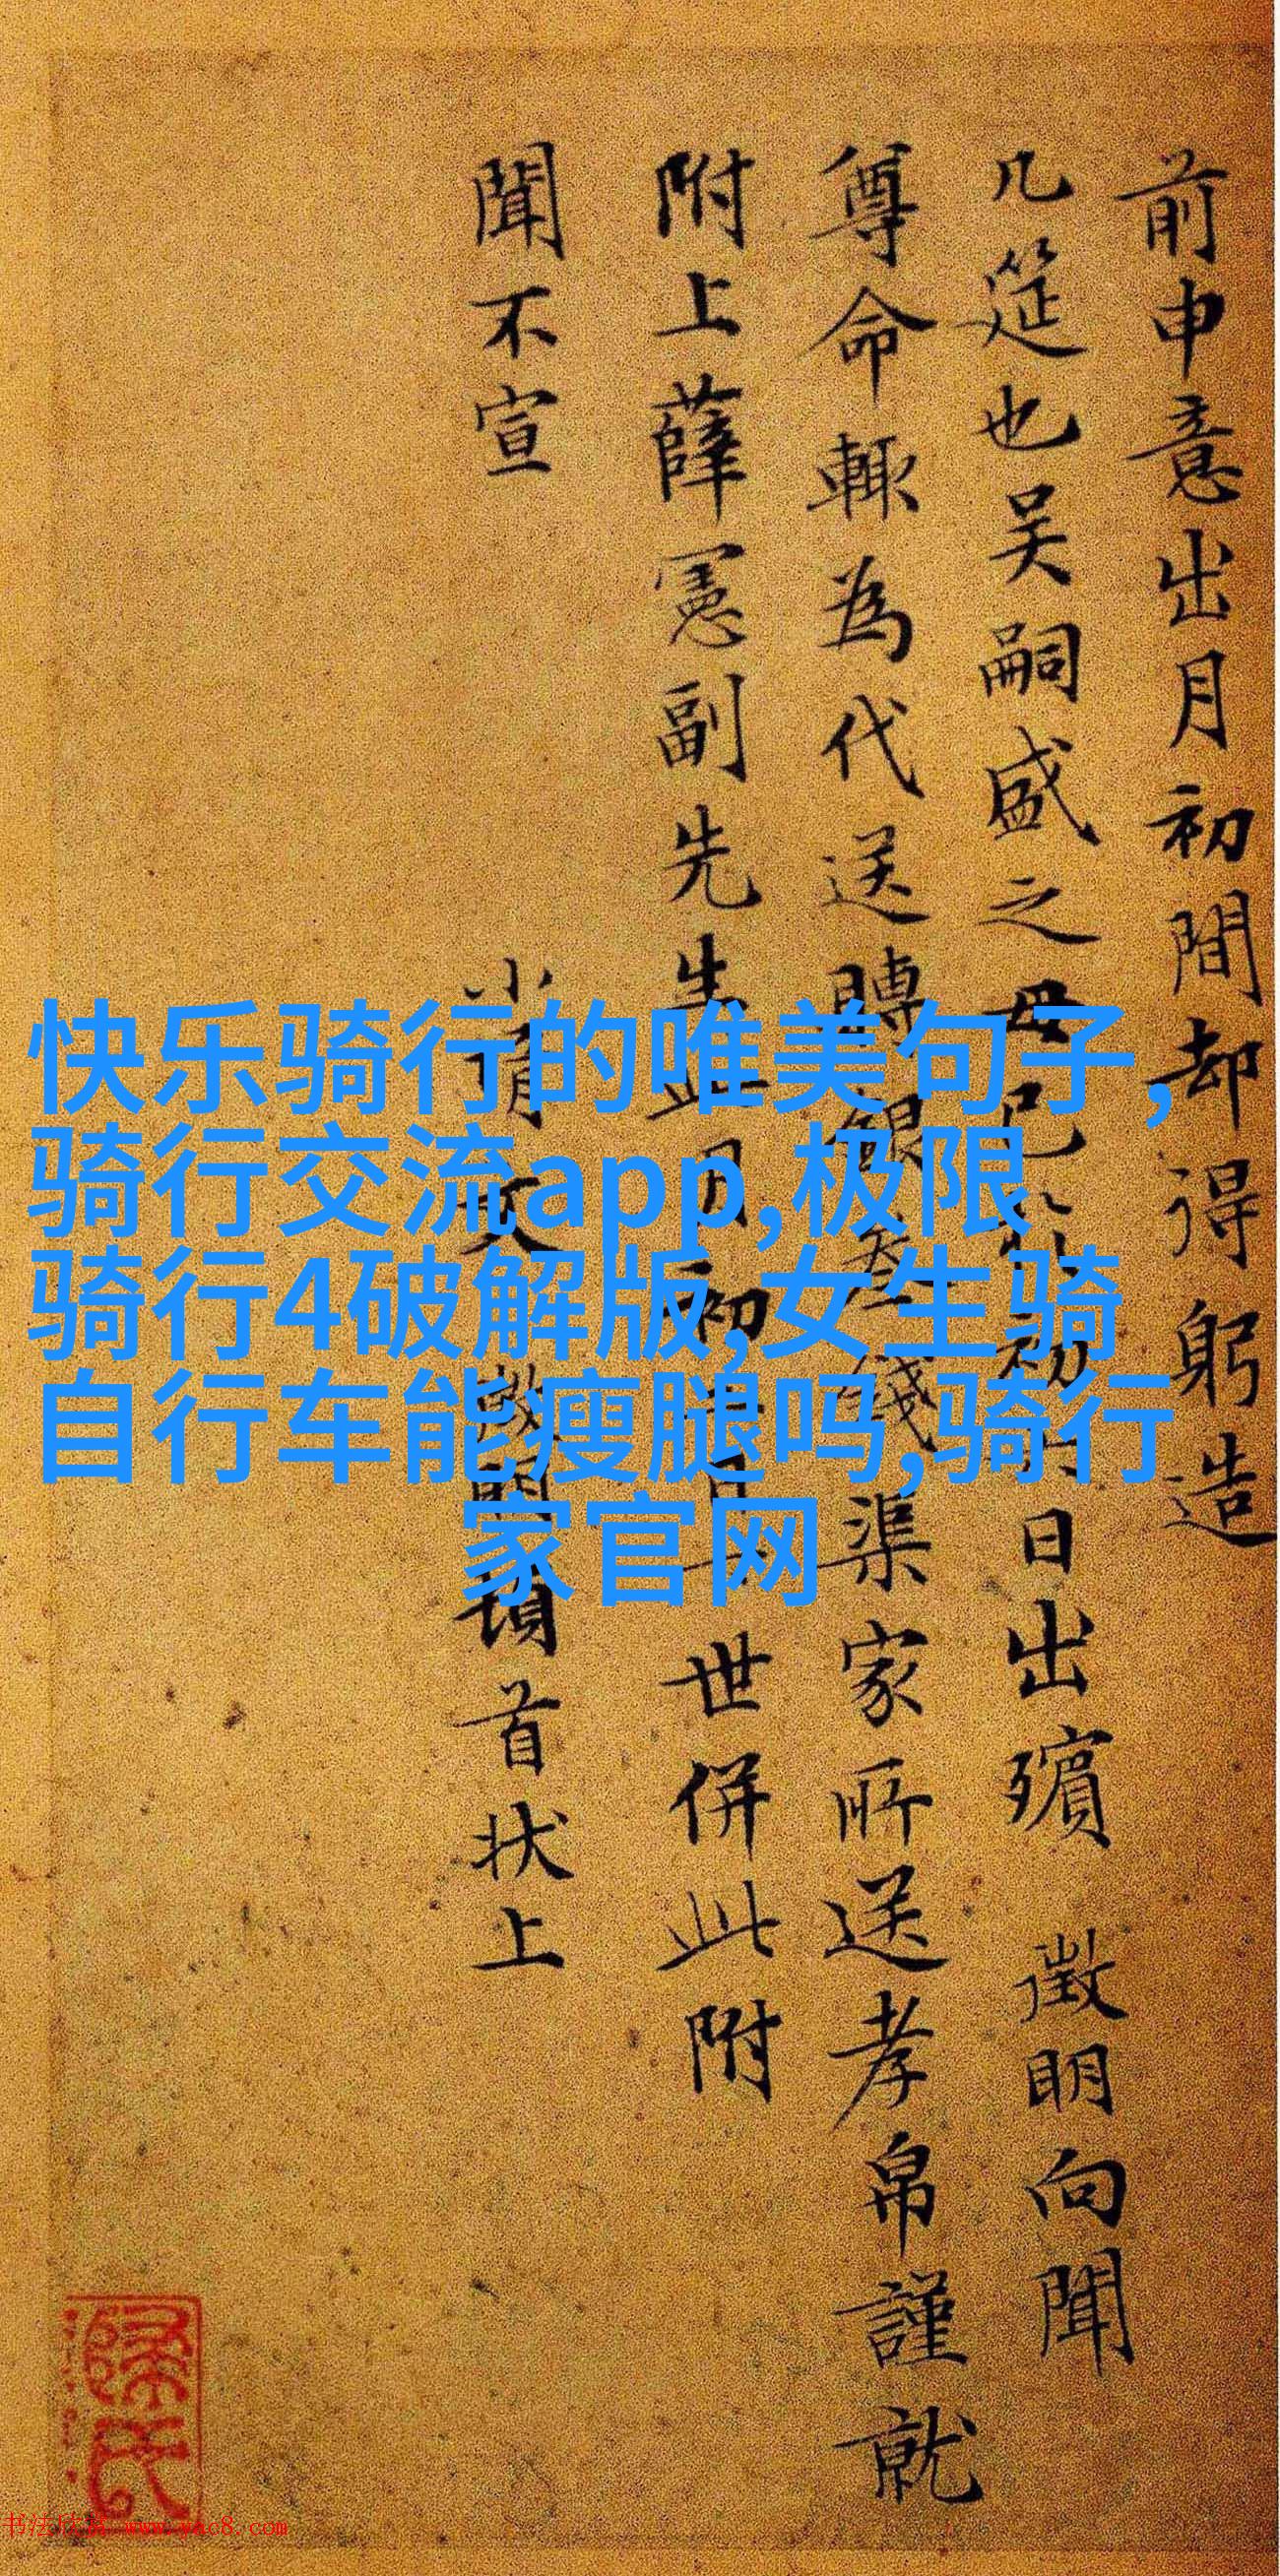 前申意出月初間却得躬造
几筵也吴嗣盛之母已於初日出殯 徵明向聞
尊命輙為代送賻銀叁錢渠家所送孝帛謹就
附上薛憲副先生明初世併此附
聞不宣
頓首状上
快乐骑行的唯美句子,
骑行交流app,极限
骑行4破解版,女生骑
自行车能瘦腿吗,骑行
家官网
书法欣赏 www.yac8.com